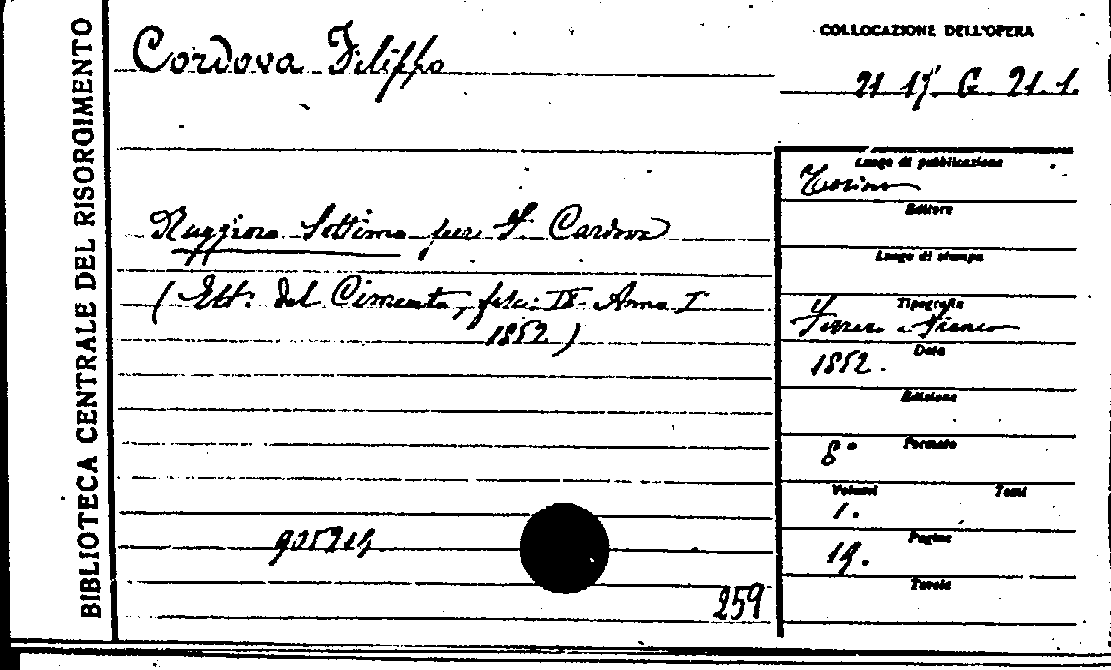 BIBLIOTECA CENTRALE DEL RISORGIMENTO
Cordova Filippo
COLLOCAZIONE DELL'OPERA
21 G. 21. 1.
Ruggiero Settimo per F. Cordova
(Estr. dal Cimento, fasc: IX Anno I
1852)
Luogo di pubblicazione
Torino
Editore
Luogo di stampa
Tipografia
Ferrero e Franco
Data
1852.
Edizione
Formato
8°
Volumi Tomi
1.
Pagine
Tavole
259